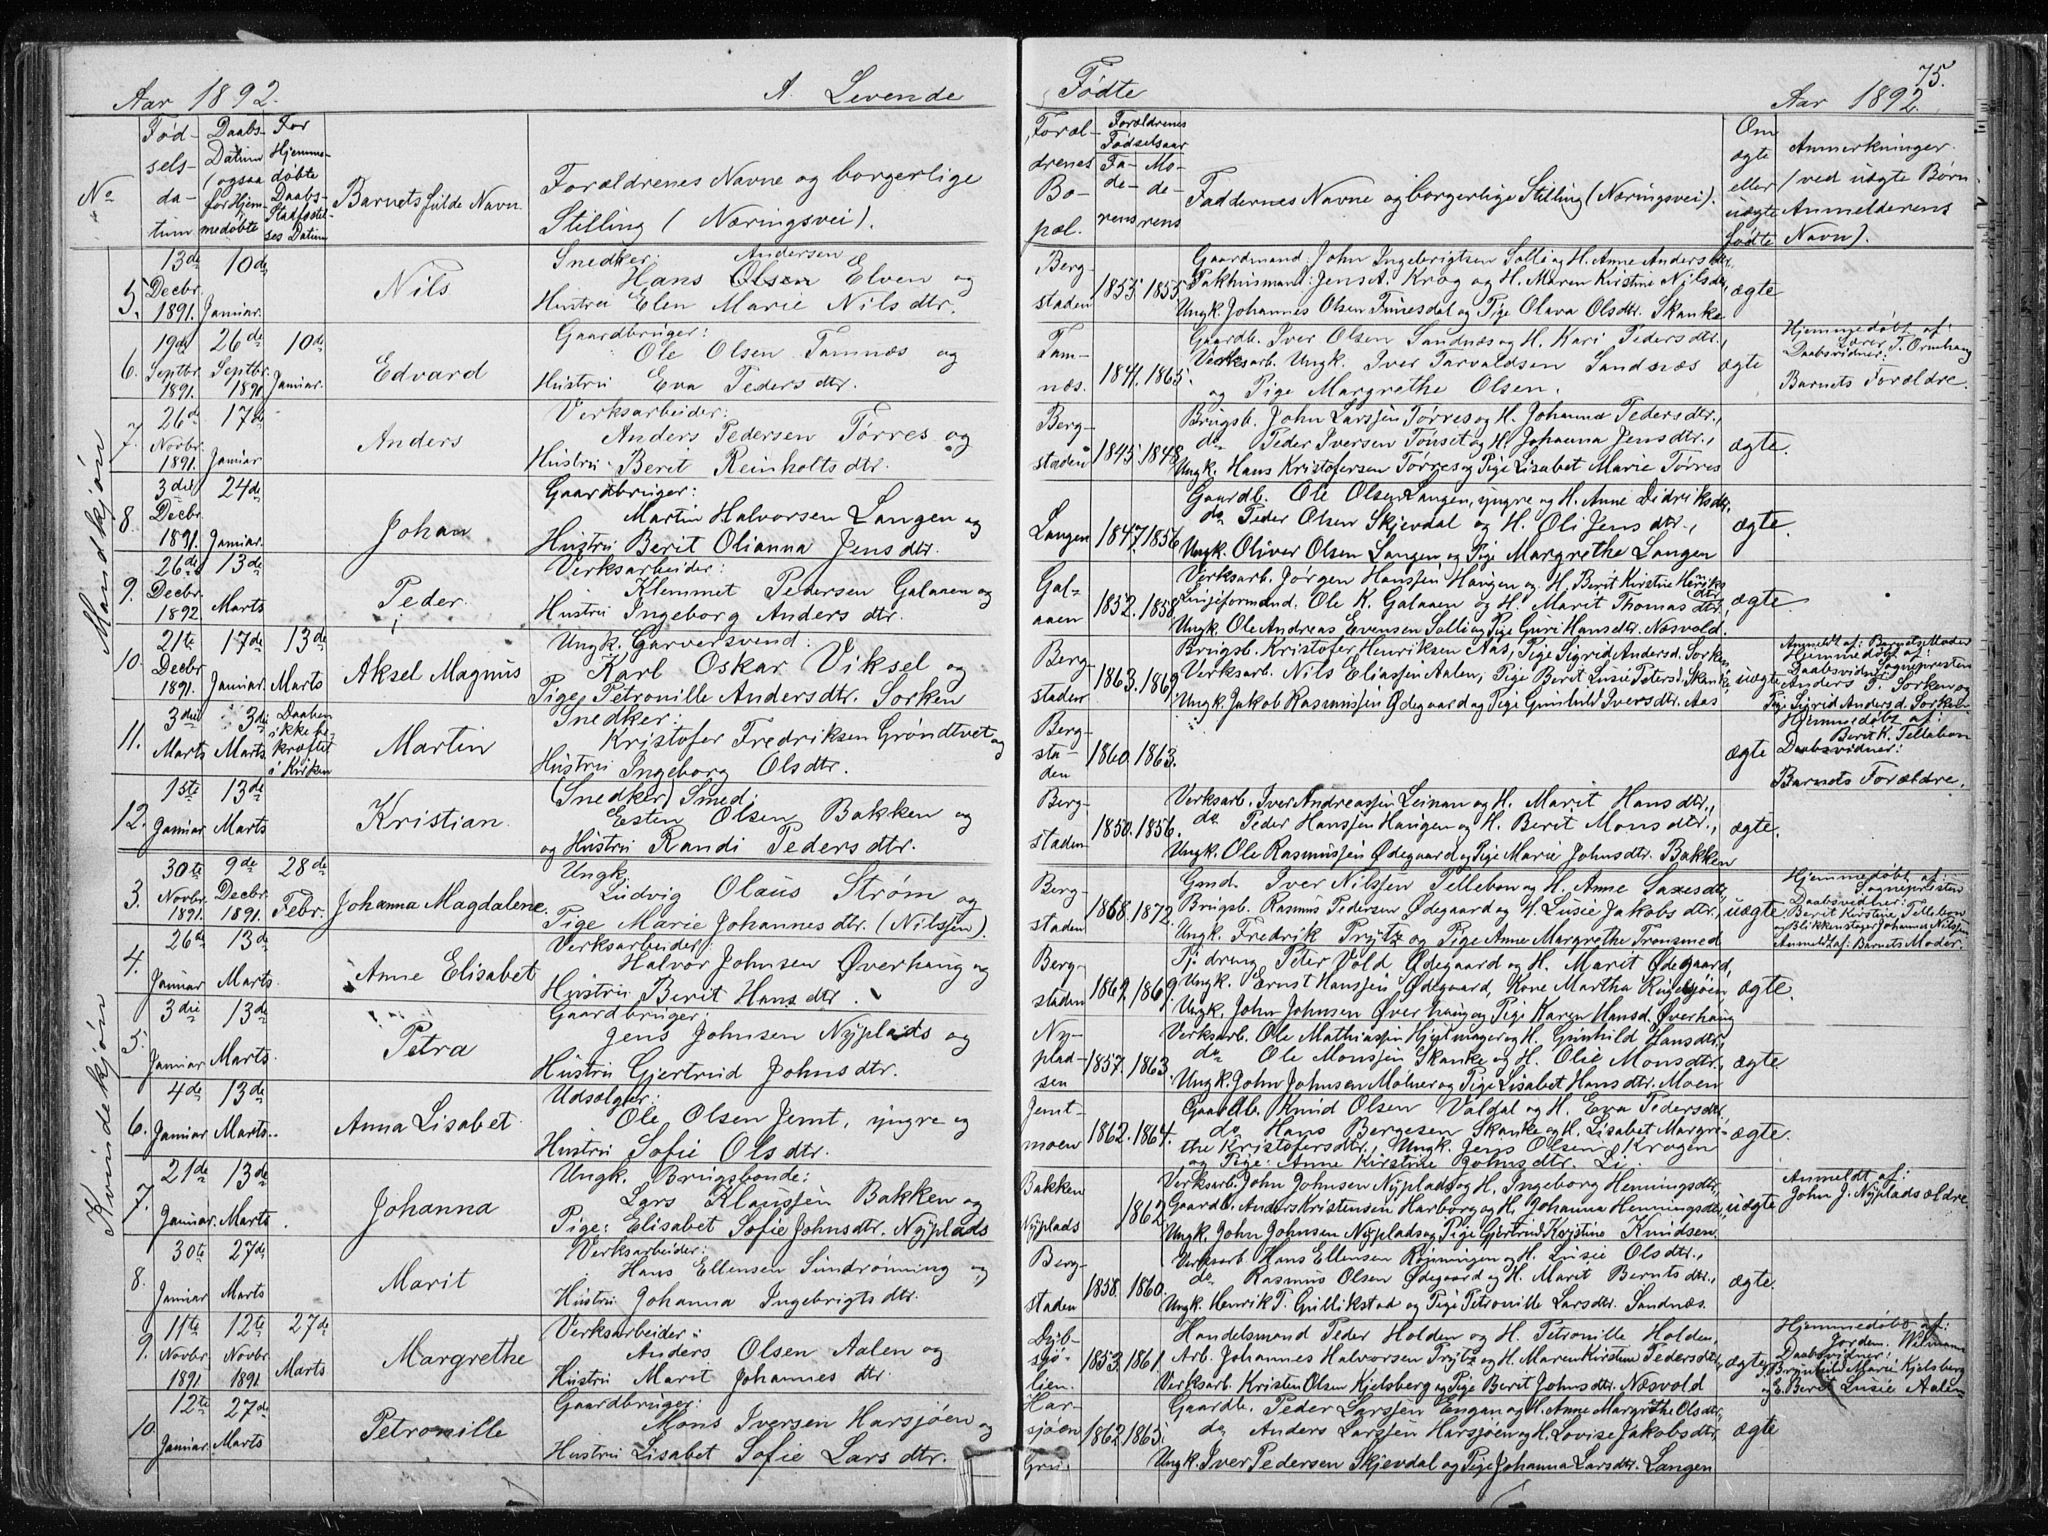 Aar 1892.
A. Levende
No
Fødselsdatum
Daabs-Datum (ogsaa for Hjemmedøbte
For Hjemmedøbte Daabs-Stadfæstelses Datum
Barnets fulde Navn.
Forældrenes Navne og borgerlige
Stilling (Næringsvei).
Mandkjøn
5. 13de Decbr. 1891. 10de Januar. Nils
Snedker: Andersen
Hans Olsen Elven og
Hustru Elen Marie Nilsdtr.
6. 19de Septbr. 1891 26de Septbr. 1891 10de Januar. Edvard
Gaardbruger:
Ole Olsen Tamnæs og
Hustru Eva Pedersdtr.
7. 26de Novbr. 1891. 17de Januar Anders
Verksarbeider:
Anders Pedersen Tørres og
Hustru Berit Reinholtsdtr.
8. 3die Decbr. 1891. 24de Januar. Johan
Gaardbruger:
Martin Halvorsen Langen og
Hustru Berit Olianna Jensdtr.
9. 26de Decbr. 1892. 13de Marts Peder.
Verksarbeider:
Klemmet Pedersen Galaaen og
Hustru Ingeborg Andersdtr.
10. 21te Decbr 1891. 17de Januar. 13de Marts Aksel Magnus
Ungk. Garversvend:
Karl Oskar Viksel og
Pige Petronille Andersdtr. Sorken
11. 3die Marts 3die Marts. Daaben ikke bekræftet i Kirken Martin
Snedker:
Kristofer Fredriksen Grøndtvet og
Hustru Ingeborg Olsdtr.
12. 1ste Januar 13de Marts Kristian.
(Snedker) Smed:
Esten Olsen Bakken og
og Hustru Randi Pedersdtr.
Kvindekjøn
3. 30te Novbr. 1891. 9de Decbr. 1891. 28de Febr. Johanna Magdalene.
Ungk.
Ludvig Olaus Strøm og
Pige Marie Johannesdtr. (Nilssen).
4. 26de Januar 13de Marts. Anne Elisabet
Verksarbeider:
Halvor Johnsen Øverhaug og
Hustru Berit Hansdtr.
5. 3die Januar 13de Marts. Petra
Gaardbruger:
Jens Johnsen Nyplads og
Hustru Gjertrud Johnsdtr.
6. 4de Januar 13de Marts. Anna Lisabet.
Udsælger:
Ole Olsen Jemt, yngre og
Hustru Sofie Olsdtr.
7. 21de Januar. 13de Marts. Johanna
Ungk. Brugsbonde:
Lars Klaussen Bakken og
Pige: Elisabet Sofie Johnsdtr. Nyplads
8. 30te Januar 27de Marts Marit
Verksarbeider:
Hans Ellensen Sundrønning og
Hustru Johanna Ingebrigtsdtr.
9. 11te Novbr. 1891 12te Novbr. 1891. 27de Marts Margrethe
Verksarbeider:
Anders Olsen Aalen og
Hustru Marit Johannesdtr.
10. 12te Januar. 27de Marts Petronille
Gaardbruger:
Mons Iversen Harsjøen og
Hustru Lisabet Sofie Larsdtr.
75.
Fødte
Aar 1892.
Forældrenes Bopæl.
Forældrenes Fødselsaar
Faderens Moderens
Faddernes Navne og borgerlige Stilling (Næringsvei).
Om ægte eller uægte fødte
Anmerkninger (ved uægte Børn Anmelderens Navn).
Bergstaden 1855. 1855.
Gaardmand: John Ingebrigtsen Solli og H. Anne Andersdtr.
Pakhusmand: Jens A. Krog og H. Maren Kirstine Nilsdtr,
Ungk. Johannes Olsen Funesdal og Pige Olava Olsdtr. Skanke
ægte
Tamnæs. 1841. 1865.
Gaardb. Iver Olsen Sandnæs og H. Kari Pedersdtr.,
Verksarb. Ungk. Iver Tarvaldsen Sandnæs
og Pige Margrethe Olsen.
ægte
Hjemmedøbt af:
Lærer T. Ormhaug
Daabsvidner:
Barnets Forældre.
Bergstaden 1845. 1848.
Brugsb. John Larssen Tørres og H. Johanna Pedersdtr.,
do Peder Iversen Tønset og H. Johanna Jensdtr.,
Ungk. Hans Kristofersen Tørres og Pige Lisabet Marie Tørres
ægte.
Langen 1847. 1856.
Gaardb. Ole Olsen Langen, yngre og H. Anne Didriksdtr,
do Peder Olsen Skjevdal og H. Oli Jensdtr.,
Ungk. Oliver Olsen Langen og Pige Margrethe Langen
ægte.
Galaaen 1852. 1858.
Verksarb. Jørgen Hanssen Haugen og H. Berit Kirstine Henriksdtr
Linjeformand. Ole K. Galaaen og H. Marit Thomasdtr.,
Ungk. Ole Andreas Evensen Solli og Pige Guri Hansdtr. Næsvold.
ægte
Bergstaden 1863. 1869
Brugsb. Kristofer Henriksen Aas, Pige Sigrid Andersd. Sorken,
Verksarb. Nils Eliassen Aalen, Pige Berit Lusie Petersd. Skanke,
Ungk. Jakob Rasmussen Ødegaard og Pige Gunhild Iversdtr. Aas
uægte
Anmeldt af: Barnets Moder
Hjemmedøbt af:
Sognepresten
Daabsvidner:
Anders P. Sorken og
Pige Sigrid Andersd. Sorken
Bergstaden 1860. 1863.
ægte
Hjemmedøbt af:
Berit K. Tellebon
Daabsvidner:
Barnets Forældre.
Bergstaden 1850. 1856.
Verksarb. Iver Andreassen Leinan og H. Marit Hansdtr.,
do Peder Hanssen Haugen og H. Berit Monsdtr.,
Ungk. Ole Rasmussen Ødegaard og Pige Marie Johnsdtr. Bakken
ægte.
Bergstaden 1868. 1872.
Gmd. Iver Nilssen Tellebon og H. Anne Saxesdtr,
Brugsb. Rasmus Pedersen Ødegaard og H. Lusie Jakobsdtr.,
Ungk. Fredrik Trytz og Pige Anne Margrethe Tronsmed
uægte.
Hjemmedøbt af:
Sognepresten
Daabsvidner:
Berit Kirstine Tellebon
og Blikkenslager Johannes Nilssen
Anmeldt af: Barnets Moder.
Bergstaden 1867. 1869.
Peter Vold Ødegaard og H. Marit Ødegaard,
Ungk. Ernst Hanssen Ødegaard, Kone Martha Rugelsjøen
Ungk. John Johnsen Øverhaug og Pige Karen Hansd. Øverhaug
ægte.
Nypladsen 1857. 1863.
Verksarb. Ole Mathiassen Hjulmager og H. Gunhild Hansdtr.,
do Ole Monssen Skanke og H. Olie Monsdtr.,
Ungk. John Johnsen Molner og Pige Lisabet Hansdtr. Moen
ægte.
Jemtmoen 1862. 1864.
Gaardb. Knud Olsen Valdal og H. Eva Pedersdtr.
do. Hans Bergesen Skanke og H. Lisabet Margre-
the Kristofersdtr., Ungk. Jens Olsen Krogen
og Pige: Anne Kirstine Johnsdtr. Li.
ægte.
Bakken
Nyplads 1862.
Verksarb. John Johnsen Nyplads og H. Ingeborg Henningsdtr.,
Gaardb. Anders Kristensen Harborg og H. Johanna Henningsdtr.,
Ungk. John Johnsen Nyplads og Pige Gjertrud Kirstine Knudsen.
uægte
Anmeldt af:
John J. Nyplads ældre.
Bergstaden 1858. 1860.
Verksarb. Hans Ellensen Rønningen og H. Lusie Olsdtr.,
do. Rasmus Olsen Ødegaard og H. Marit Berntsdtr.,
Ungk. Henrik T. Gullikstad og Pige Petronille Larsdtr. Sandnæs.
ægte.
Dybsjølien. 1853. 1861.
Handelsmand Peder Holden og H. Petronille Holden,
Arb. Johannes Halvorsen Trytz og H. Maren Kirstine Pedersdtr,
Verksarb. Kristen Olsen Kjelsberg og Pige Berit Johnsdtr. Næsvold
ægte
Hjemmedøbt af:
Jordem. Wilmann
Daabsvidner:
Brynhild Marie Kjelsberg
og E. Berit Lusie Aalen
Harsjøen 1862. 1865.
Gaardb. Peder Larssen Engan og H. Anne Margrethe Olsdtr,
do Anders Larssen Harsjøen og H. Lovise Jakobsdtr
Ungk. Iver Pedersen Skjevdal og Pige Johanna Larsdtr. Langen
ægte